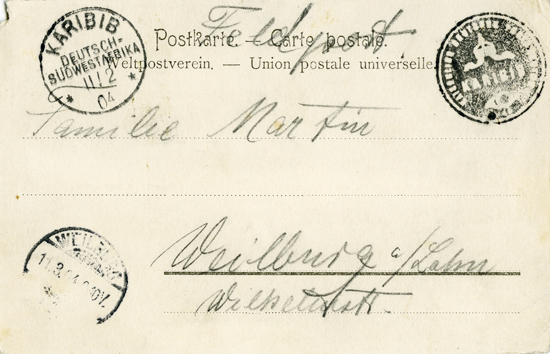 Feldpost.
Postkarte. — Carte postale.
Weltpostverein. — Union postale universelle.
KARIBIB
DEUTSCH-
SÜDWESTAFRIKA
11/2
04
Familie Martin
Weilburg a/Lahn
WEILBURG
11.3.04